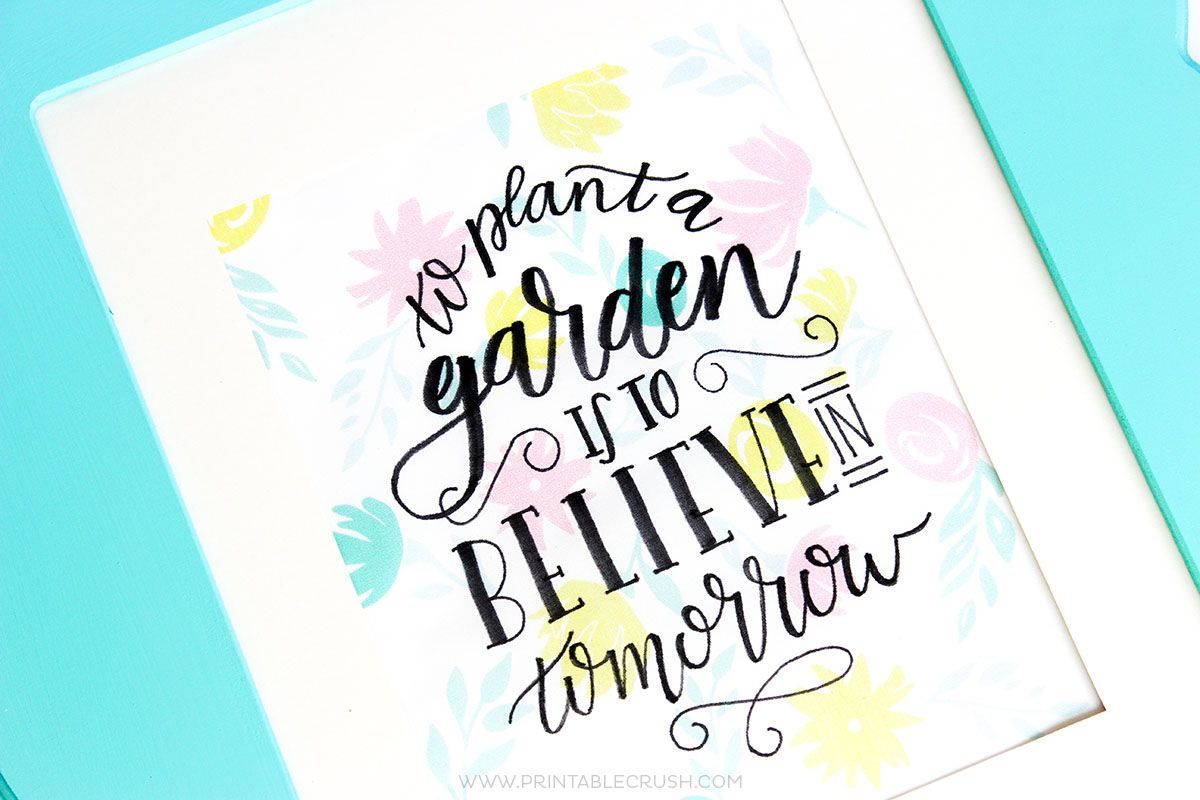 to plant a
garden
IS TO
BELIEVE IN
tomorrow
WWW.PRINTABLECRUSH.COM